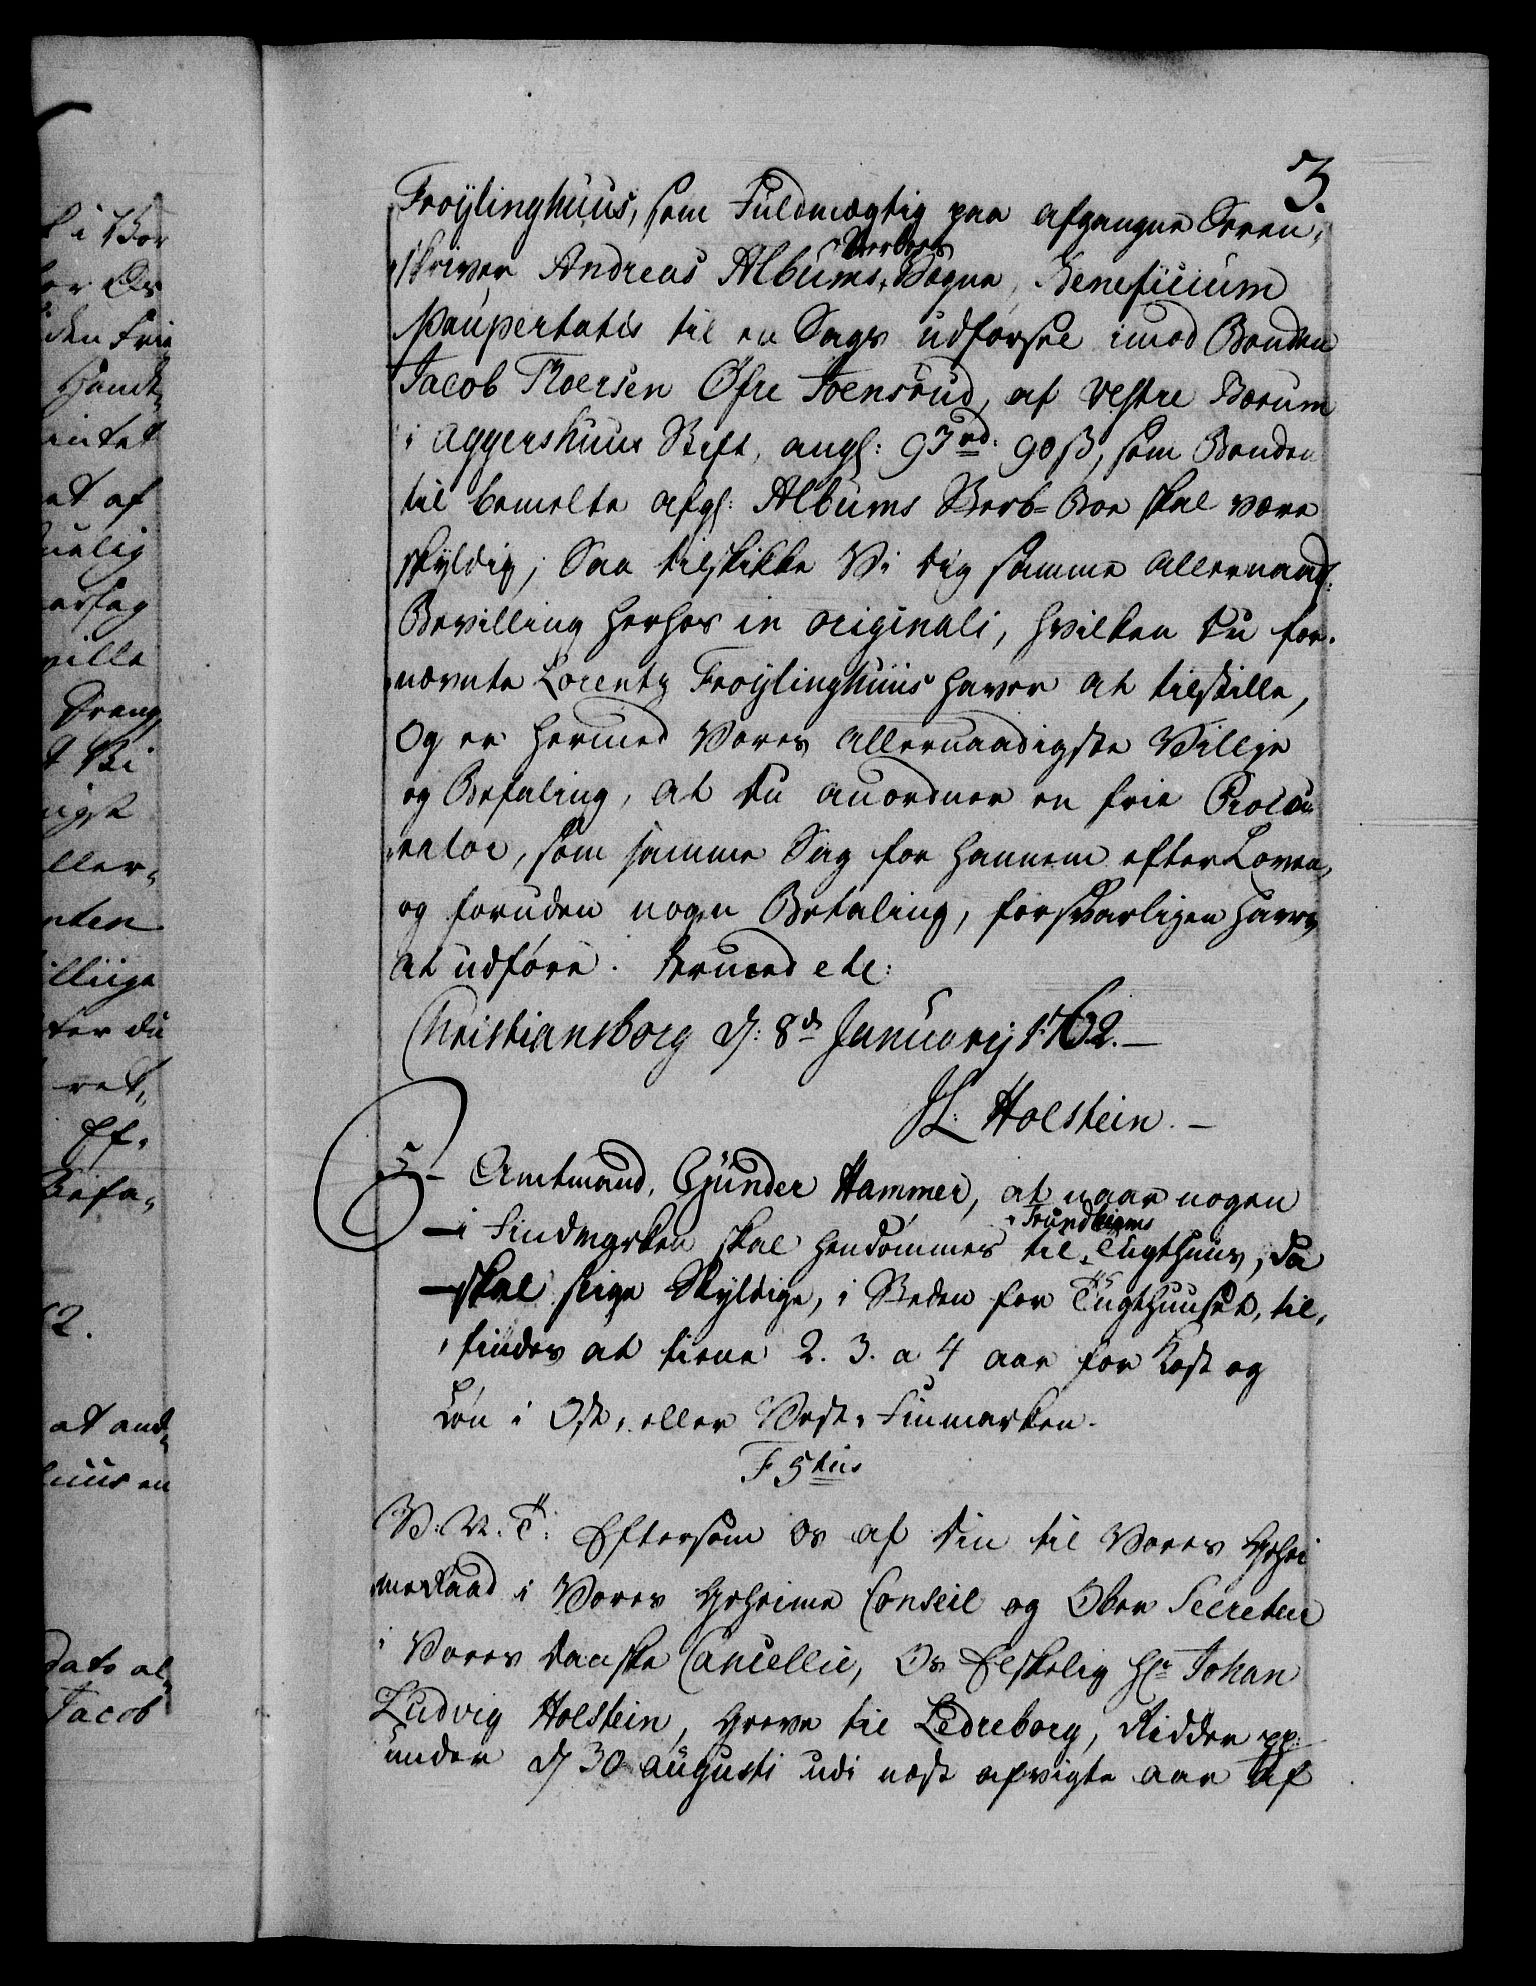 3.
Froÿlinghuus, som Fuldmægtig paa afgangne Soren-
skriver Andreas Albums Sterboes Vegne, Beneficium
Paupertatis til en Sags udførsel imod Bonden
Jacob Thoersen Øfre Toensrud, af Vestre Bærum
i Aggershuus Stift, angl: 97 rd. 90 ß, som Bonden
til bemelte afgl: Albums Sterb-Boe skal være
skyldig; Saa tilskikke Vi dig samme allernaadl:
Bevilling herhos in originali, hvilken du for-
nævnte Lorentz Froÿlinghuus haver at tilstille,
Og er hermed Vores allernaadigste Villje
og Befaling, at du anordner en frie Procu-
rator, som samme Sag for hannem efter Loven,
og foruden nogen Betaling, forsvarligen haver
at udføre. Dermed etc:
Christiansborg d: 8de Januarij 1762.
JL: Holstein.
5 Amtmand, Gjünder Hammer, at naar nogen
i Findmarken skal hendømmes til Trundhiems Tugthuus, da
skal slige Skyldige, i Steden for Tugthuuset, til-
findes at tiene 2. 3. a 4 aar for Kost og
Løn i Ost- eller Vest-Finmarken.
F 5tus
V: V: T: Eftersom Os af din til Vores Gehei-
meRaad i Vores Geheime Conseil og Ober Secreteur
i Vores Danske Cancellie, Os Elskelig Hr. Johan
Ludvig Holstein, Greve til Ledreborg, Ridder pp:
under d 30 Augusti udi næst afvigte aar af